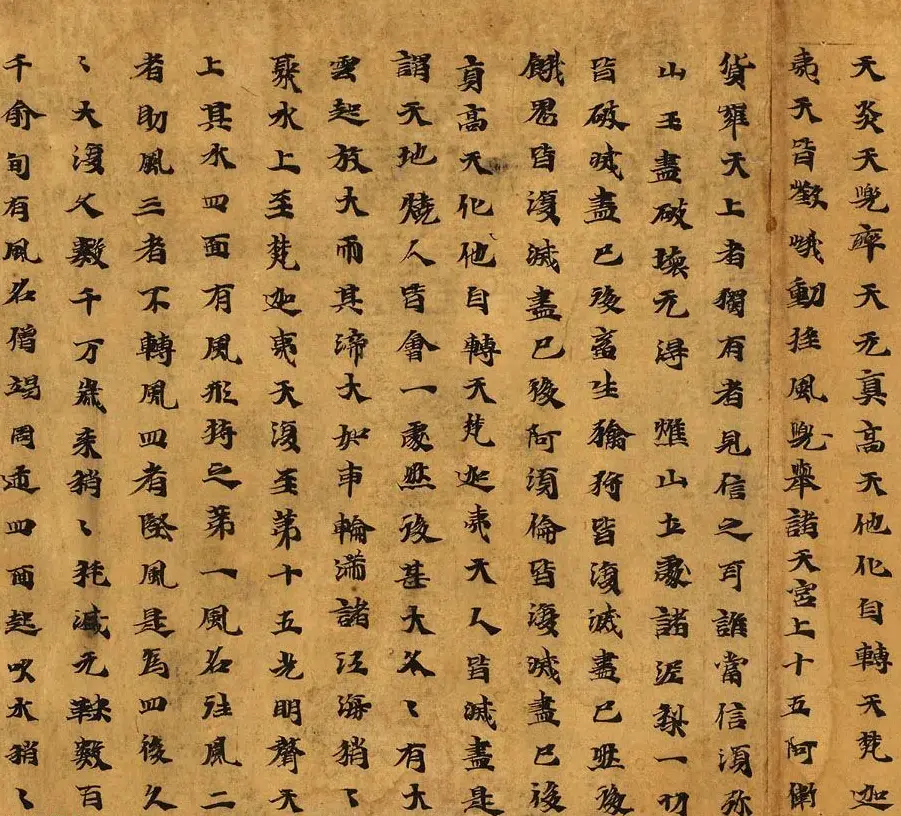 天炎天兜率天无真高天他化自轉天梵迦
夷天皆歡喜動挂風兜舉諸天宮上十五阿衛
貨羅天上者獨有者見信之耳誰當信須弥
山王盡破壞无得 燋山土處諸泥梨一切
皆破滅盡已後畜生獝狩皆復滅盡已然後
餓鬼皆復滅盡已後阿須倫皆復滅盡已後
真高天化他自轉天梵迦夷天人皆滅盡是
謂天地燒人皆會一處然後甚大久〻有大
雲起放大雨其渧大如車輪滿諸江海稍〻
聚水上至梵迦夷天復至第十五光明聲天
上其水四面有風形持之第一風名住風二
者助風三者不轉風四者堅風是爲四後久
〻大復久數千万歲來稍〻耗減无鞅數百
千俞旬有風名僧竭周遍四面起吹水稍〻